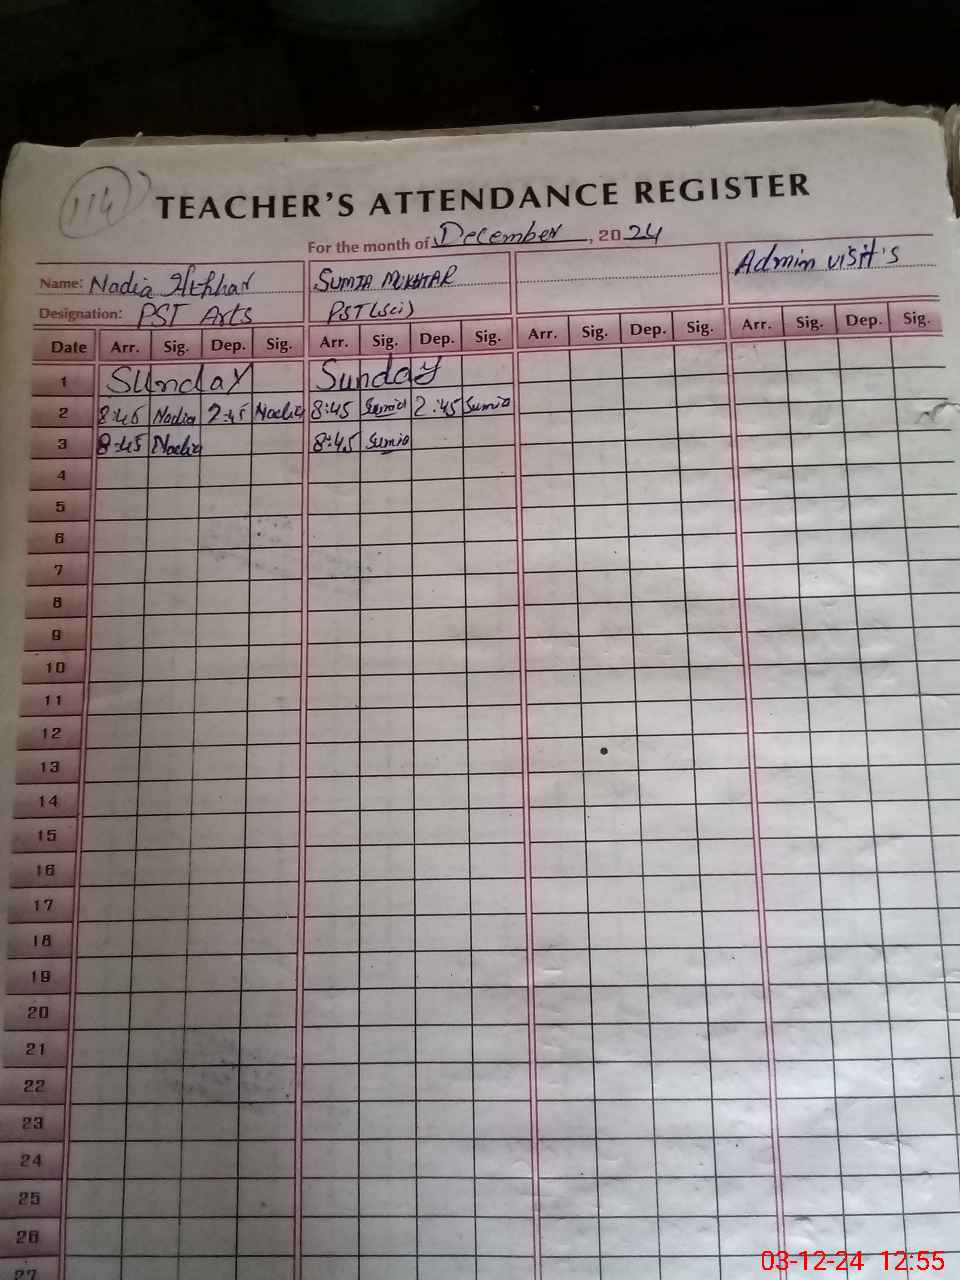 114
TEACHER'S ATTENDANCE REGISTER
For the month of December, 2024
Name: Nadia Iftkhar SUMIA MUKHTAR Admin visit's
Designation: PST Arts PST(Sci)
Date Arr. Sig. Dep. Sig. Arr. Sig. Dep. Sig. Arr. Sig. Dep. Sig. Arr. Sig. Dep. Sig.
1 Sunday Sunday
2 8:45 Nadia 2:45 Nadia 8:45 Sumia 2:45 Sumia
3 8:45 Nadia 8:45 Sumia
4
5
6
7
8
9
10
11
12
13
14
15
16
17
18
19
20
21
22
23
24
25
26
27
03-12-24 12:55